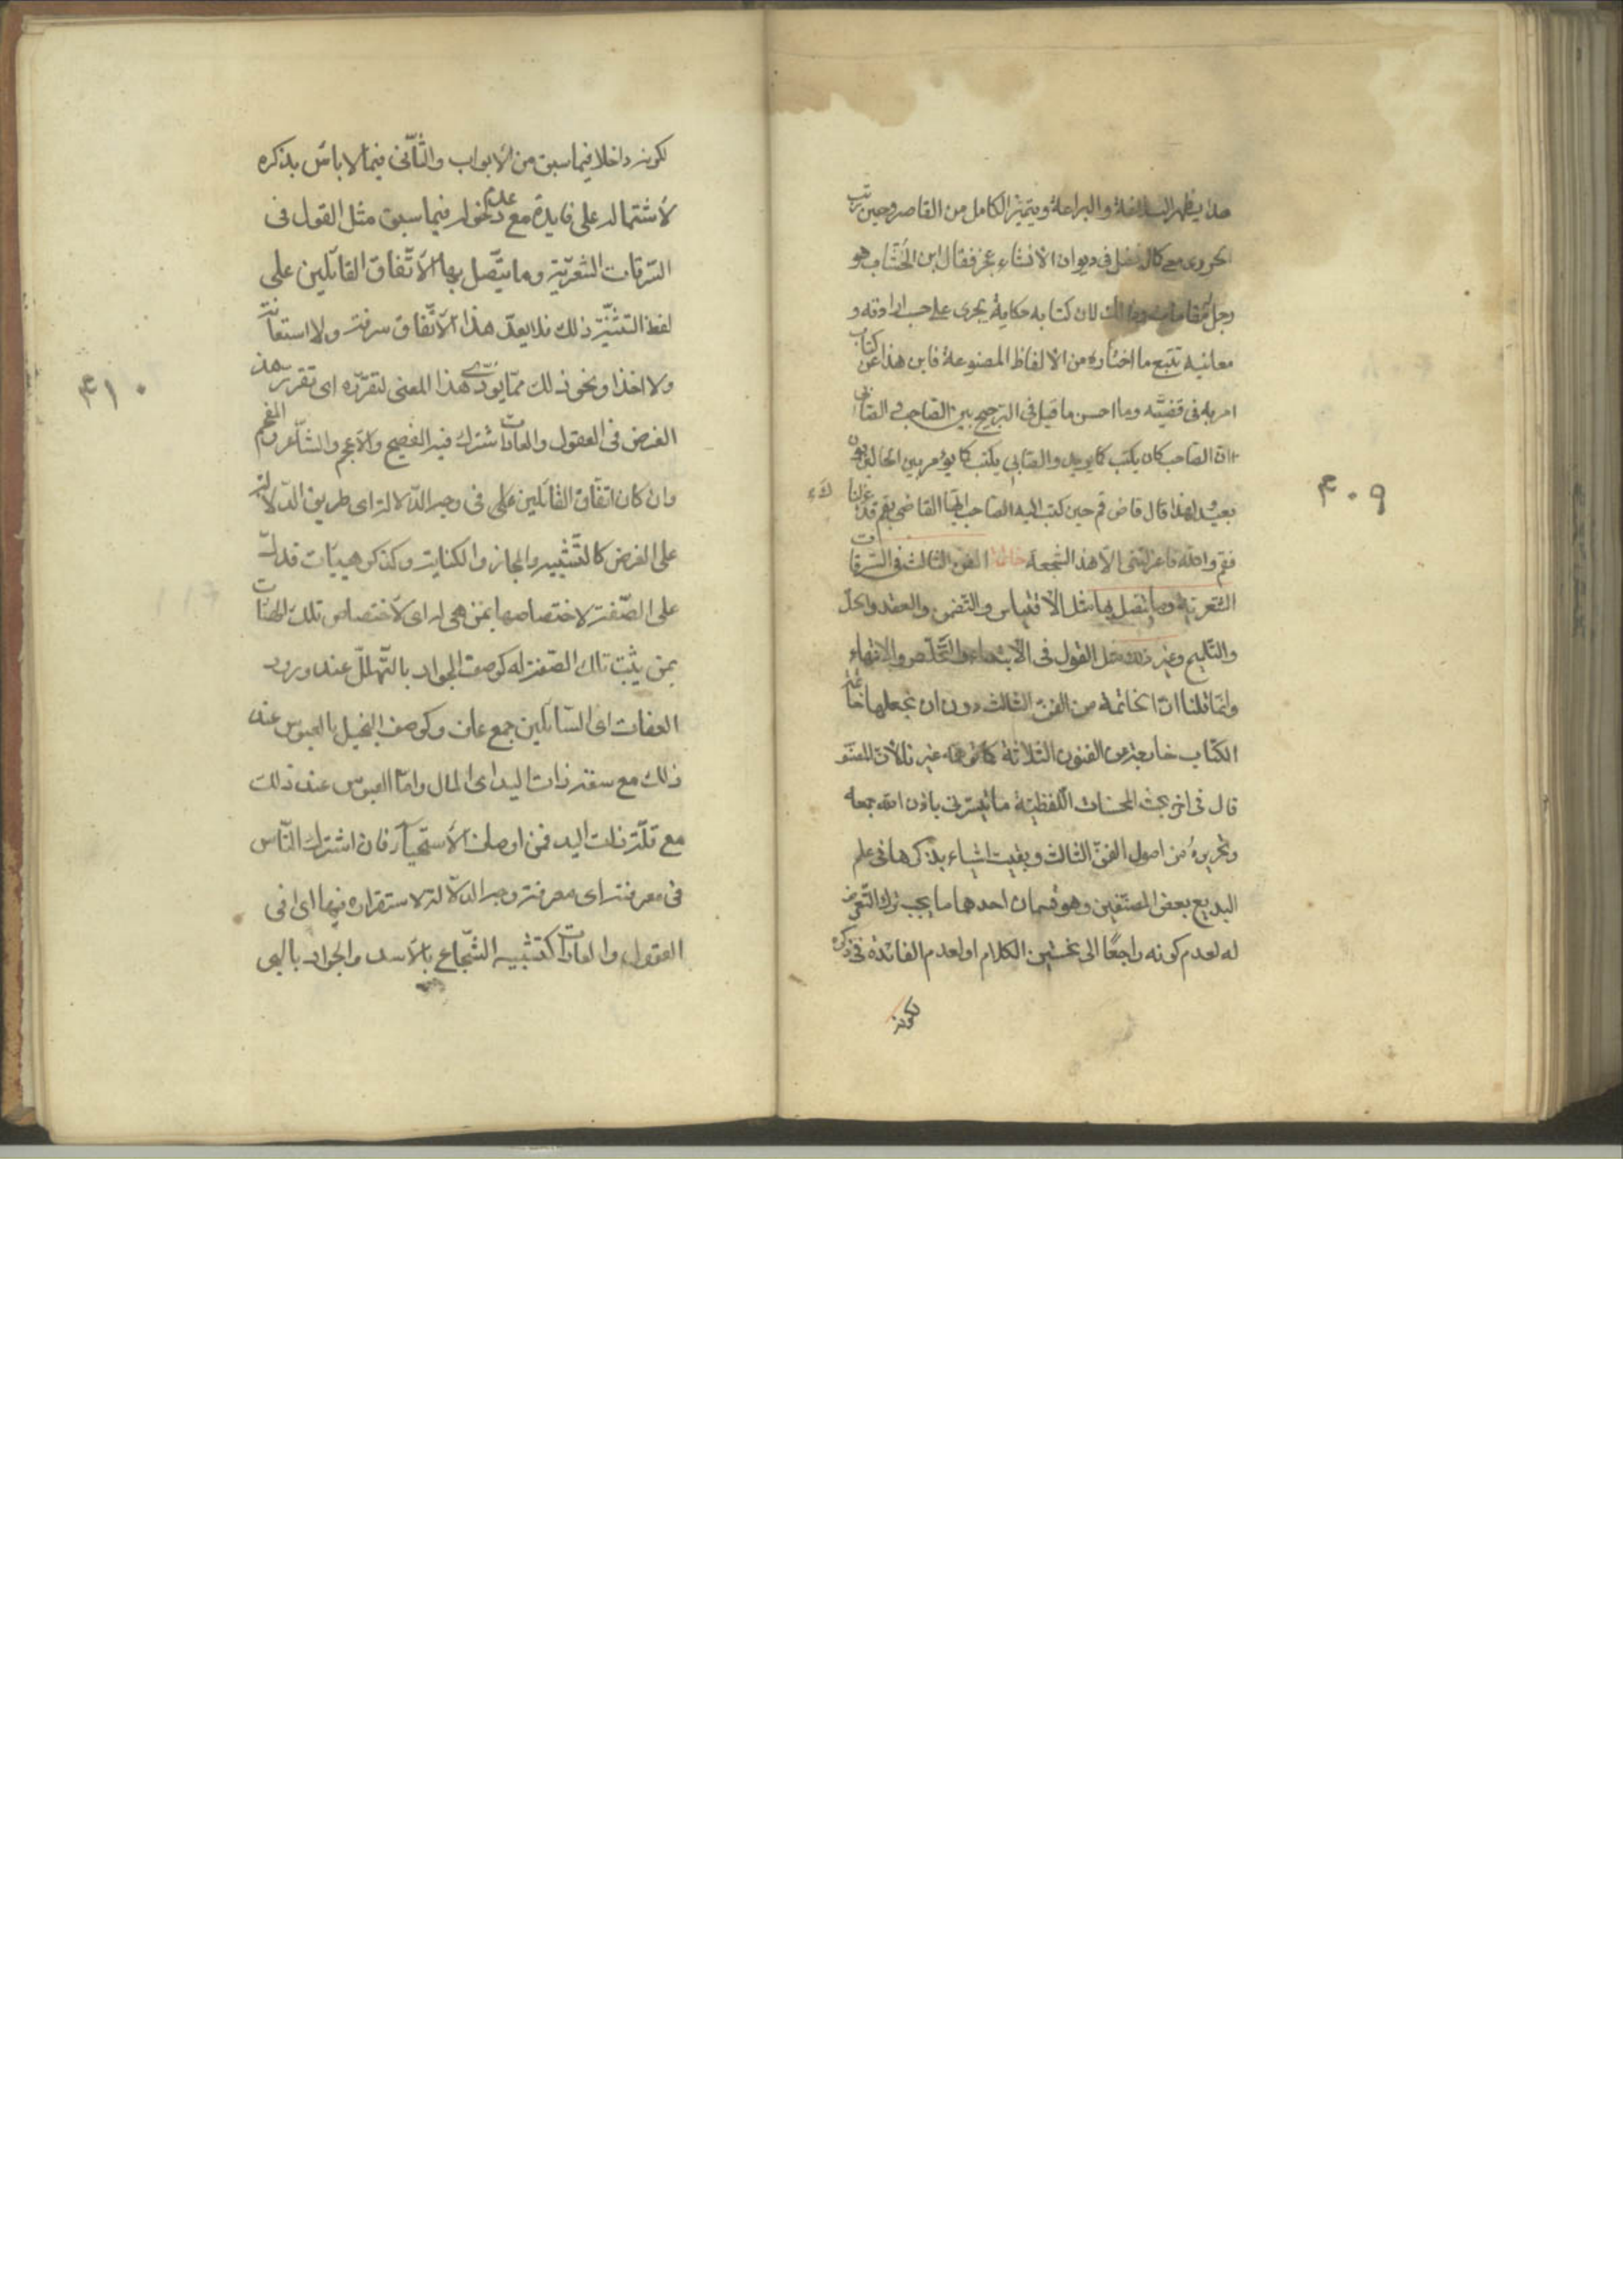 هذا يظهر البلاغة والبراعة ويتميز الكامل من القاصر وحين رتب
الحريرى مع كمال فضل فى ديوان الانشاء عجز فقال ابن الخشاب هو
رجل مقامات وذلك لان كتابه حكاية يجرى على حسب ارادته و
معانيه تتبع ما اختاره من الالفاظ المصنوعة فاين هذا عن كتاب
امر به فى قضية وما احسن ما قيل فى الترجيح بين الصاحب و الصابى
ان الصاحب كان يكتب كما يريد والصابى يكتب كما يؤمر وبين الحالين بون
بعيد لهذا قال قاضى قم حين كتب اليه الصاحب ايها القاضى بقم قد عزلناك
فقم والله ما عزلتنى الا هذه السجعة خاتمة الفن الثالث فى السرقات
الشعرية وما يتصل بها مثل الاقتباس والتضمين والعقد والحل
والتلميح وغير ذلك مثل القول فى الابتداء والتخلص والانتهاء
وانما قلنا ان الخاتمة من الفن الثالث دون ان نجعلها خاتمة
الكتاب خارجة من الفنون الثلاثة كما توهمه غيرنا لان المصنف
قال فى اخر بحث المحسنات اللفظية ما تيسر لى باذن الله جمعه
وتحريره من اصول الفن الثالث وبقيت اشياء يذكرها فى علم
البديع بعض المصنفين وهو قسمان احدهما ما يجب ترك التعرض
له لعدم كونه راجعا الى تحسين الكلام او لعدم الفائدة فى ذكره
لكونه
۳۰۹
لكونه داخلا فيما سبق من الابواب والثانى فيما لا باس بذكره
لاشتماله على فايدة مع عدم دخوله فيما سبق مثل القول فى
السرقات الشعرية وما يتصل بها الاتفاق القائلين على
لفظ التثنية ذلك فلا يعد هذا الاتفاق سرقة ولا استعانة
ولا اخذا ونحو ذلك مما يودى هذا المعنى لتقرره اى تقرر هذا
الغرض فى العقول والعادات شترك فيه الفصيح والاعجم والشاعر والمفحم
وان كان اتفاق القائلين على فى وجه الدلالة اى طريق الدلالة
على الغرض كالتشبيه والمجاز والكناية وكذكر هييات تدل
على الصفة لاختصاصها بمن هى له اى لاختصاص تلك الهيئات
بمن يثبت تلك الصفة له كوصف الجواد بالتهلل عند ورود
العفات اى السائلين جمع عاف وكوصف البخيل بالعبوس عند
ذلك مع سعة ذات اليد اى المال واما العبوس عند ذلك
مع قلة ذات اليد فمن اوصاف الاسخياء فان اشترك الناس
فى معرفته اى معرفة وجه الدلالة لاستقراره فيها اى فى
العقول والعادات كتشبيه الشجاع بالاسد والجواد بالبحر
۳۱۰